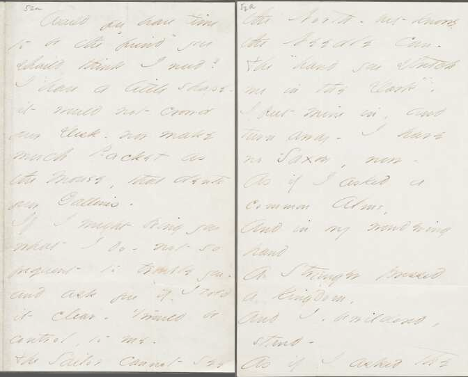 52a
Would you have time
to be the "friend" you
should think I need?
I have a little shape -
it would not crowd
your Desk - nor make
much Racket as
the Mouse, that dents
your Galleries -
If I might bring you
what I do - not so
frequent to trouble you -
and ask you if I told
it clear - 'twould be
control, to me -
The Sailor cannot see
52b
the North - but knows
the Needle can -
The "hand you stretch
me in the Dark",
I put mine in, and
turn away - I have
no Saxon, now -
As if I asked a
common Alms,
And in my wondering
hand
A Stranger pressed
a Kingdom,
And I, bewildered,
stand -
As if I asked the